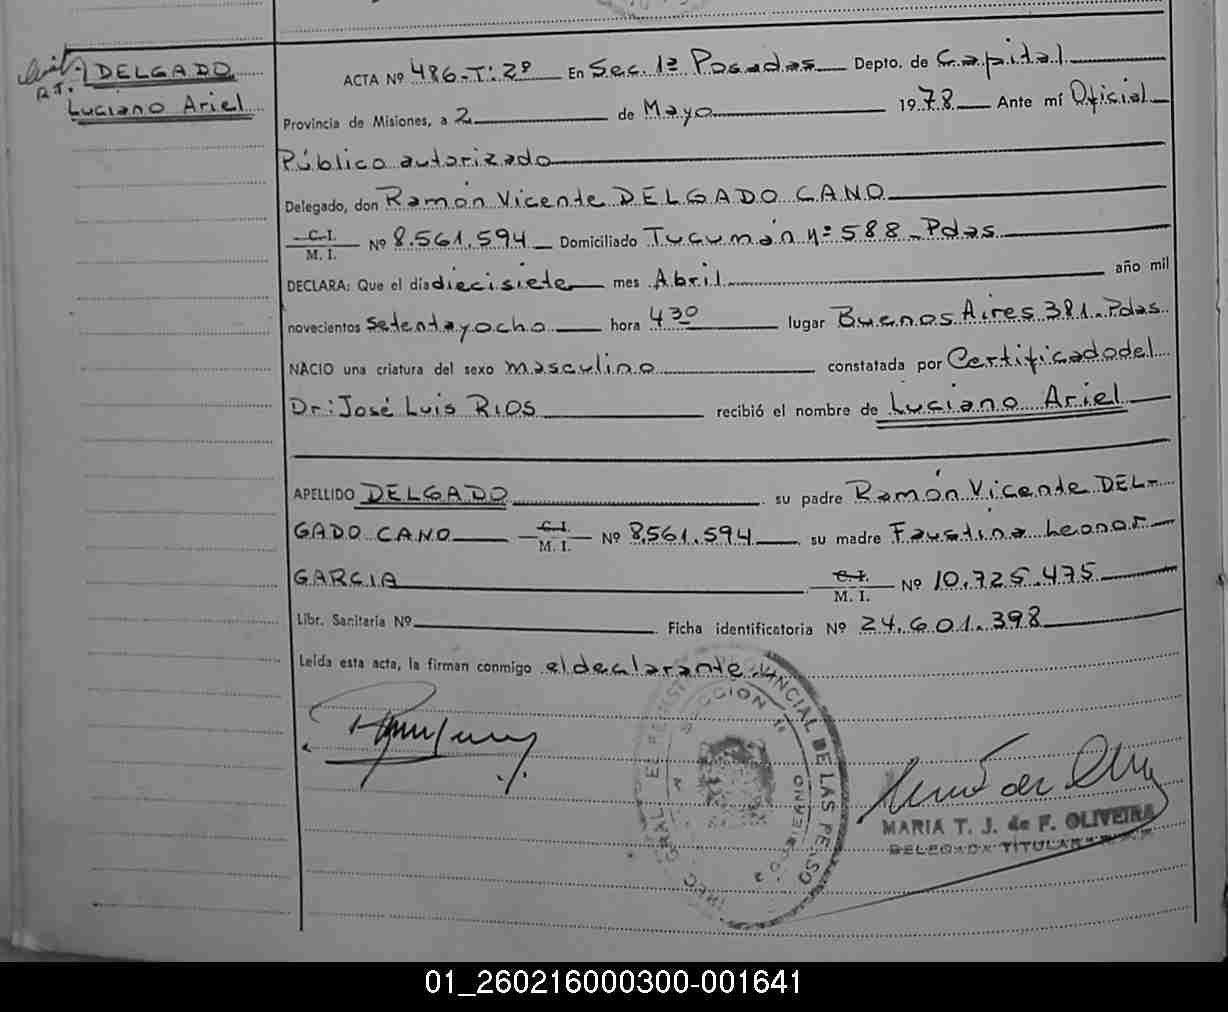 DELGADO
Luciano Ariel
ACTA Nº 486-T: 2º En Sec. 1ª Posadas Depto. de Capital
Provincia de Misiones, a 2 de Mayo 1978 Ante mí Oficial
Público autorizado
Delegado, don Ramón Vicente DELGADO CANO
C.I.
M. I. Nº 8.561.594 Domiciliado Tucumán nº 588 - Pdas
DECLARA: Que el día diecisiete mes Abril año mil
novecientos Setentayocho hora 4 30 lugar Buenos Aires 381. Pdas
NACIO una criatura del sexo masculino constatada por Certificadodel
Dr: José Luis RIOS recibió el nombre de Luciano Ariel
APELLIDO DELGADO su padre Ramón Vicente DEL-
GADO CANO C.I.
M. I. Nº 8.561.594 su madre Faustina Leonor
GARCIA C.I.
M. I. Nº 10.725.475
Libr. Sanitaria Nº Ficha identificatoria Nº 24.601.398
Leída esta acta, la firman conmigo el declarante.
SECCION
MARIA T. J. de F. OLIVEIRA
DELEGADA TITULAR
01_260216000300-001641